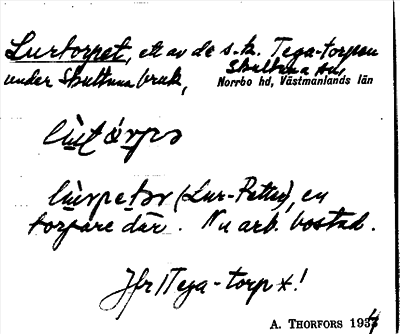 Lurtorpet, ett av de s.k. Tega-torpen
Skultuna sn,
under Skultuna bruk, Norrbo hd, Västmanlands län
lùrpetər (Lur-Petter), en
torpare där. Nu arb. bostad.
Jfr Tega-torp *!
A. THORFORS 1934